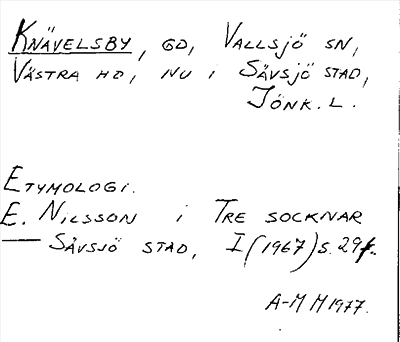 KNÄVELSBY, GD, VALLSJÖ SN,
VÄSTRA HD, NU I SÄVSJÖ STAD,
JÖNK. L.
ETYMOLOGI.
E. NILSSON I TRE SOCKNAR
— SÄVSJÖ STAD, I (1967) S. 29f.
A-M M 1977.